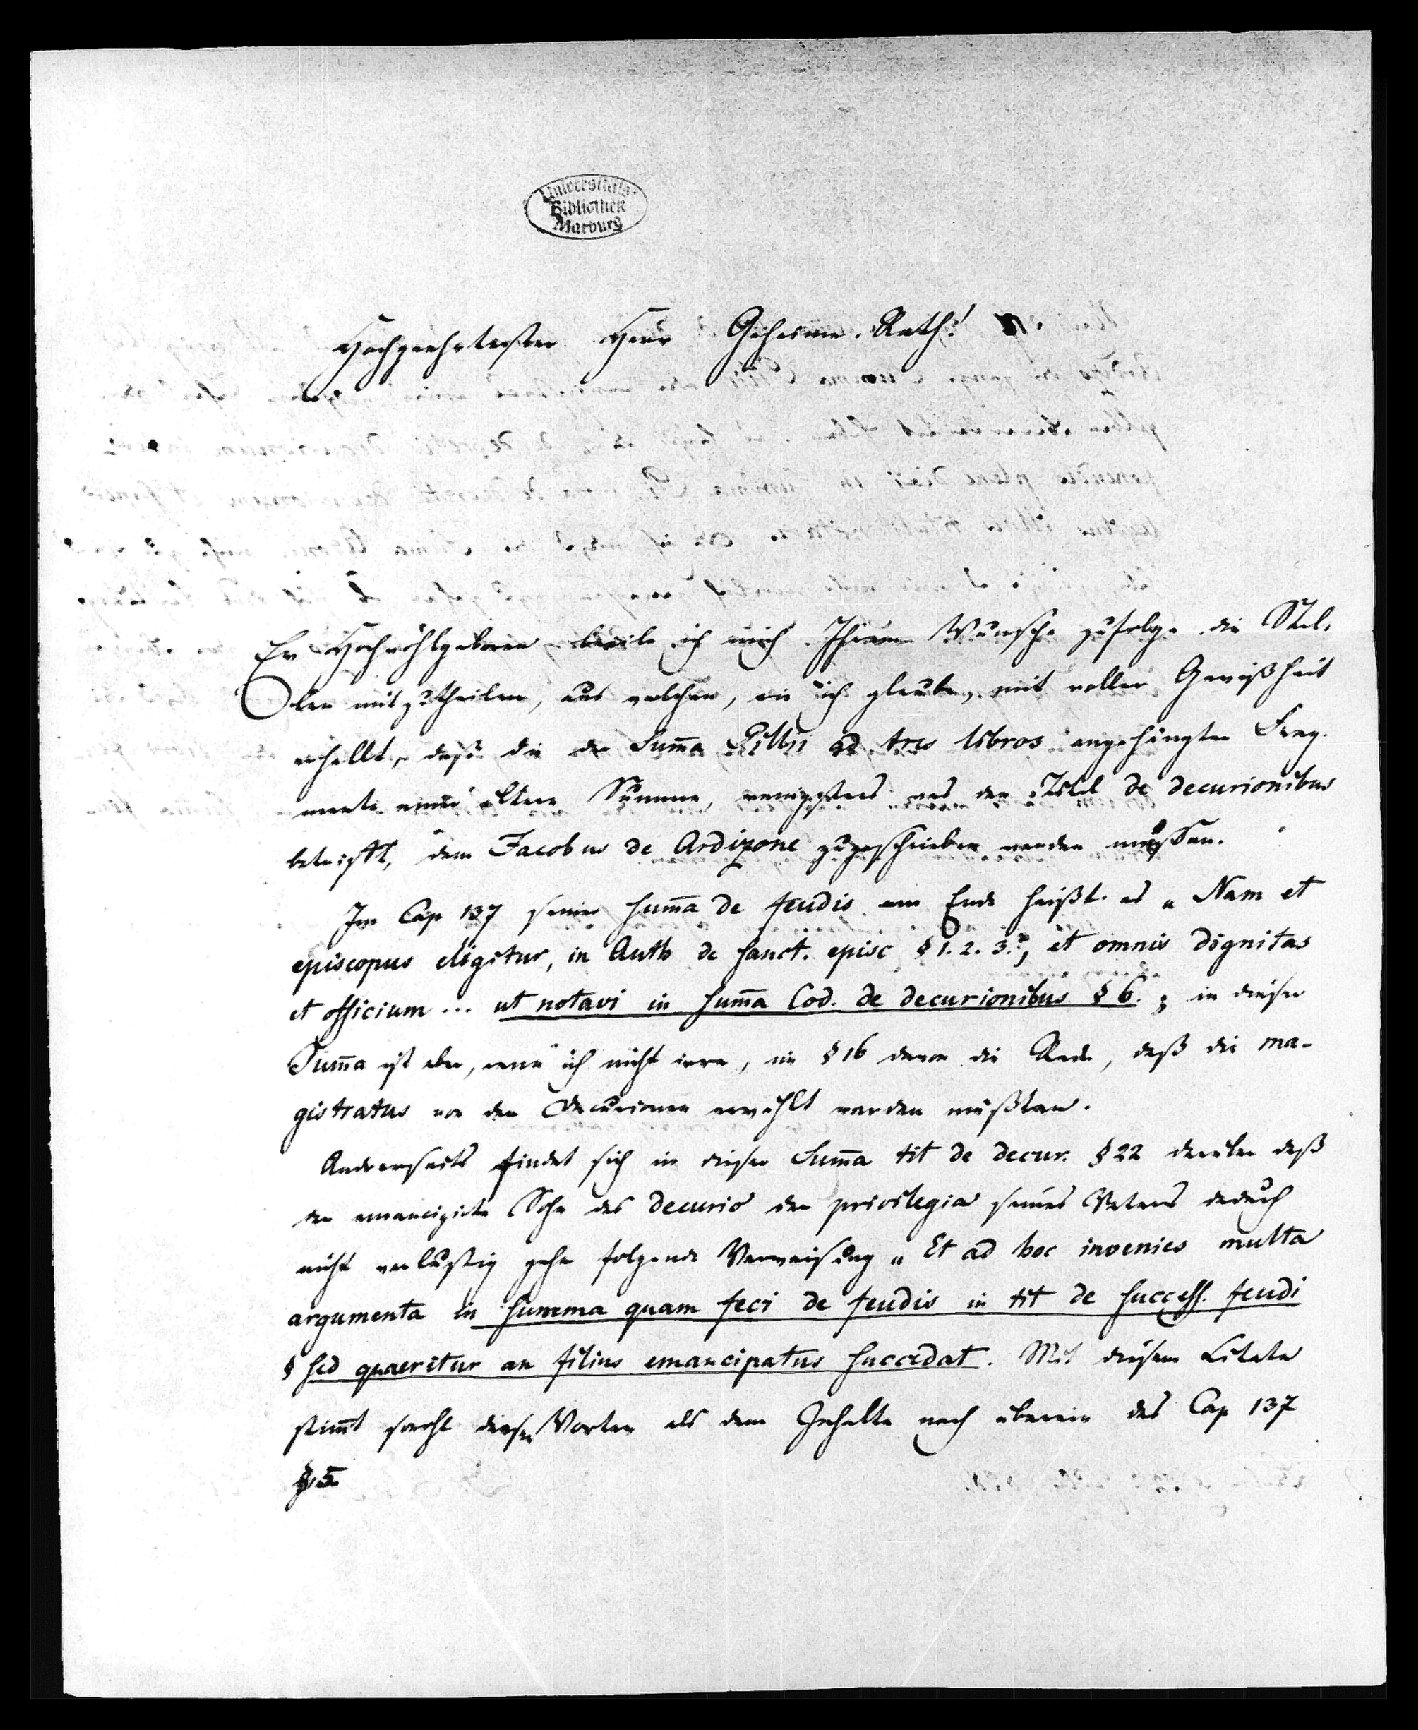 Universitäts
Bibliothek
Marburg
Hochgeehrtester Herr Geheime Rath!
Ew Hochwohlgeboren beeile ich mich Ihrem Wunsche zufolge die Stel-
len mitzutheilen, aus welchen, wie ich glaube, mit voller Gewißheit
erhellt, daß die der Sum̄a Pillii ad tres libros angehängten Frag-
mente einer ältern Summe, wenigstens was den Titel de decurionibus
betrifft, dem Jacobus de Ardizone zugeschrieben werden müssen.
Im Cap 137 seiner Sum̄a de feudis am Ende heißt es „Nam et
episcopus eligitur, in Auth de sanct. episc § 1. 2. 3., et omnis dignitas
et officium ... ut notavi in sum̄a Cod. de decurionibus § 6. ; in dieser
Sum̄a ist aber, wenn ich nicht irre, im § 16 davon die Rede, daß die ma-
gistratus von den Decurionen erwählt werden müßten.
Andrerseits findet sich in dieser Sum̄a tit de decur. § 22 darüber daß
der emancipirte Sohn des decurio der privilegia seines Vaters dadurch
nicht verlustig gehe folgende Verweisung „Et ad hoc invenies multa
argumenta in summa quam feci de feudis in tit de success. feudi
§ sed quaeritur an filius emancipatus succedat. Mit diesem Citate
stim̄t sowohl den Worten als dem Inhalte nach überein das Cap 137
§ 5